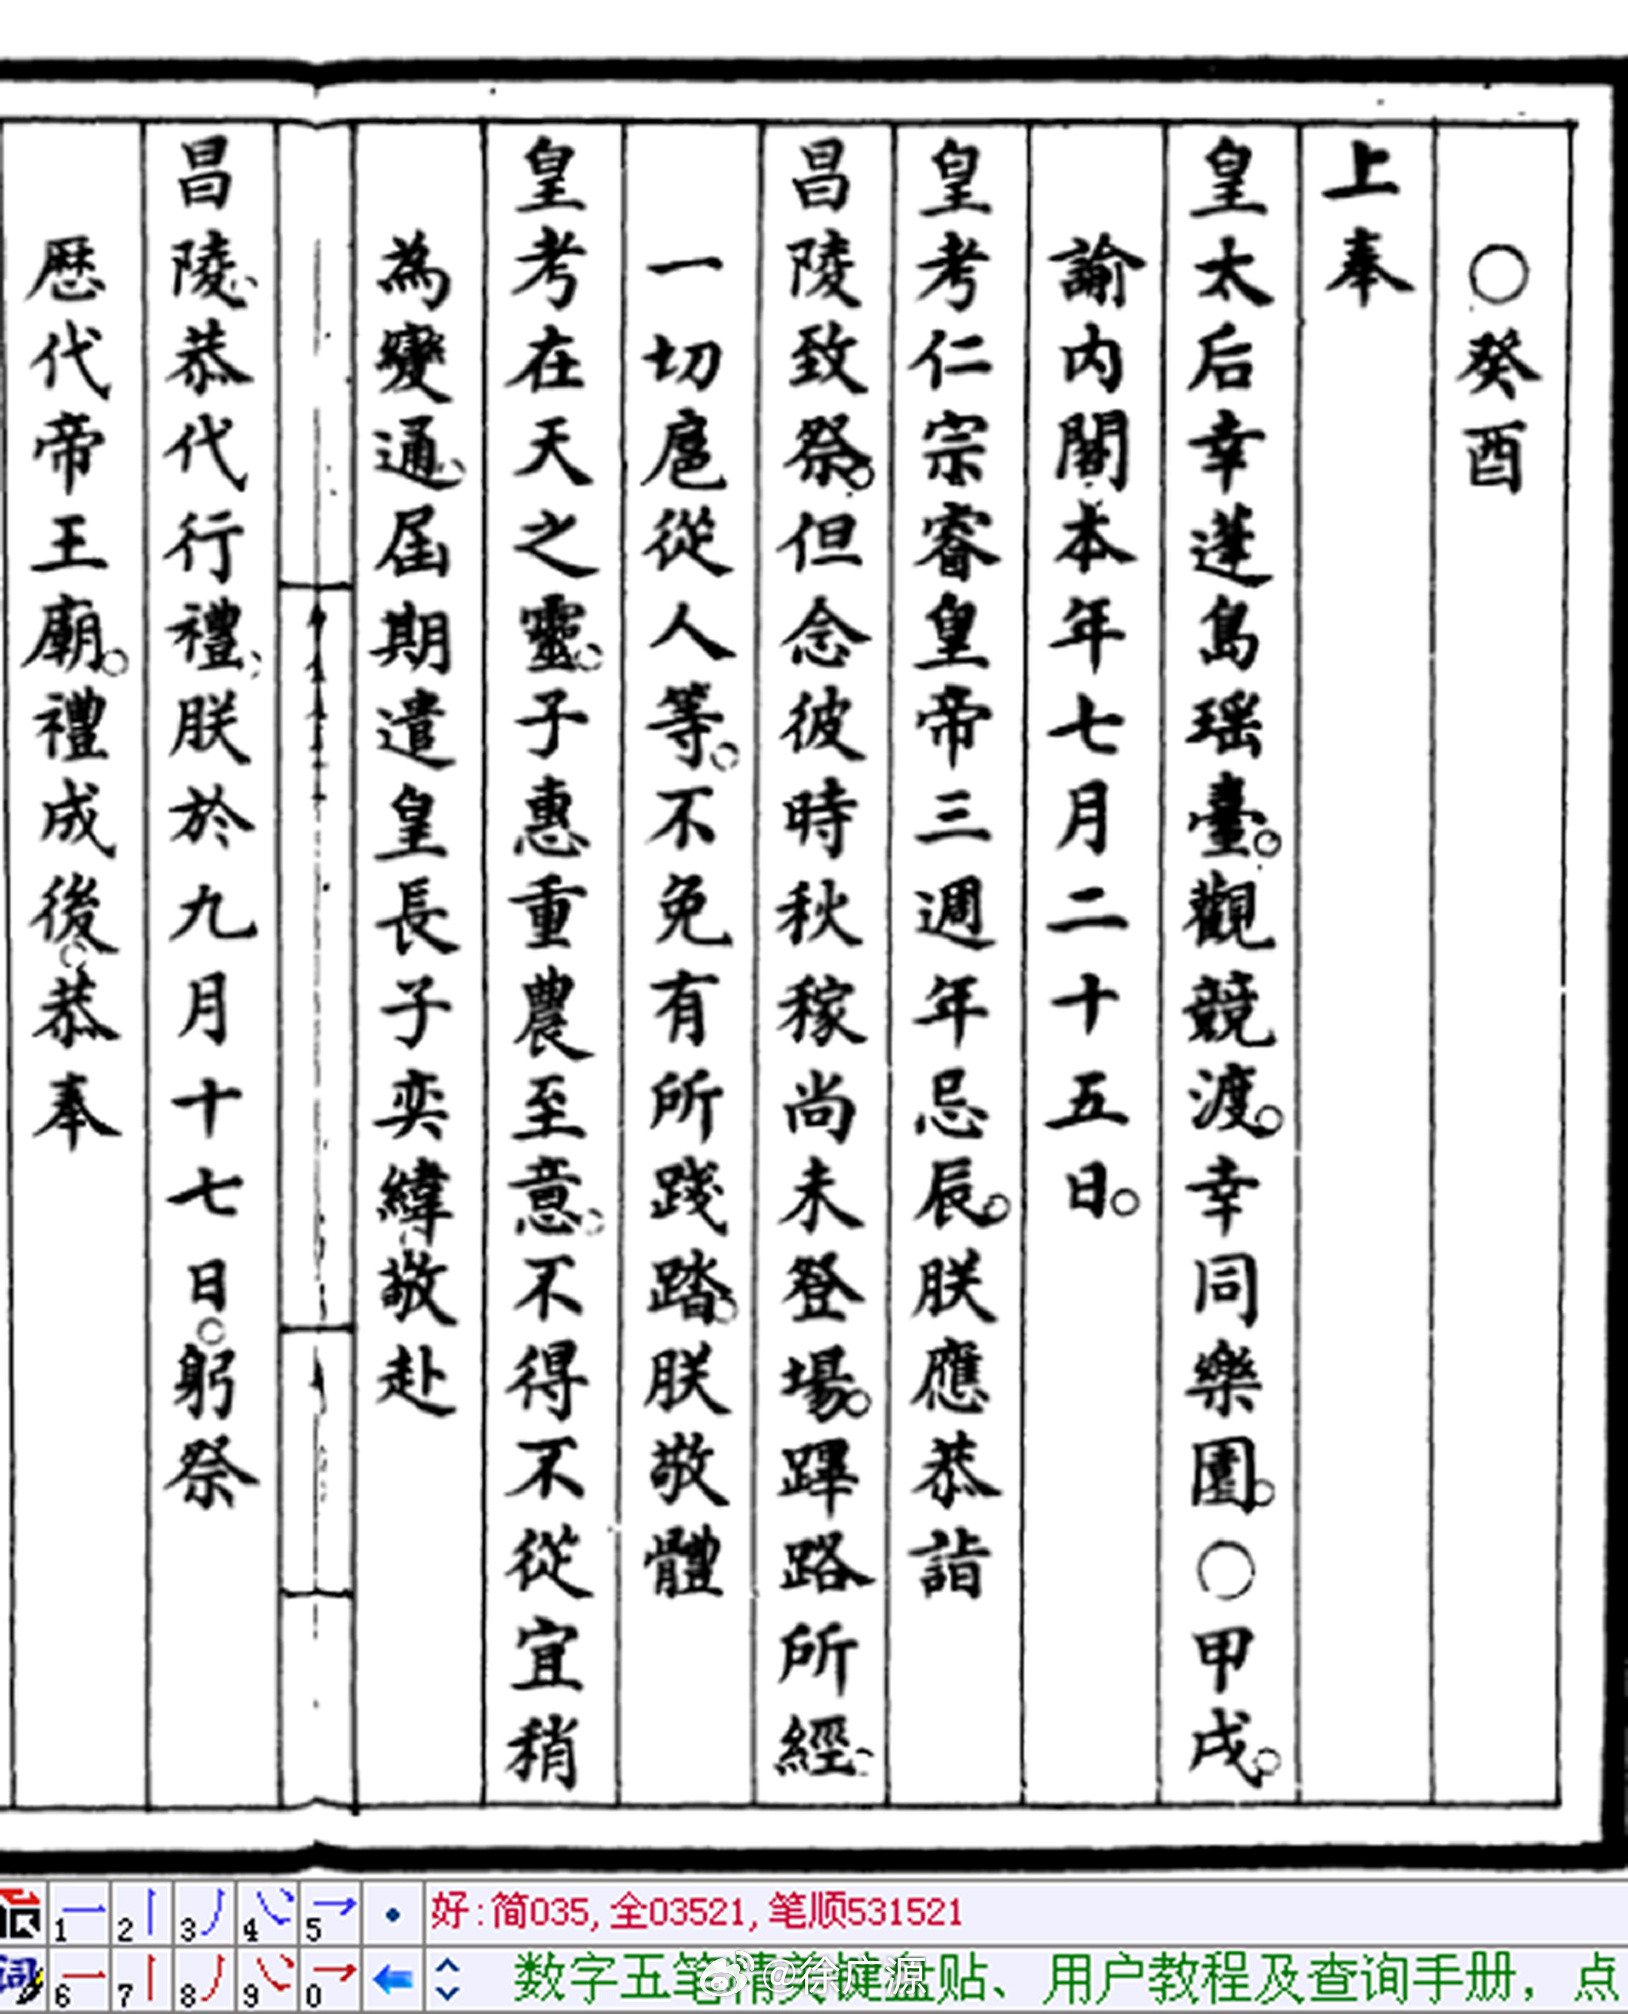 ○癸酉
上奉
皇太后幸蓬島瑤臺。觀競渡。幸同樂園。○甲戌。
諭内閣本年七月二十五日。
皇考仁宗睿皇帝三週年忌辰。朕應恭詣
昌陵致祭。但念彼時秋稼尚未登場。蹕路所經。
一切扈從人等。不免有所踐踏。朕敬體
皇考在天之靈。子惠重農至意。不得不從宜稍
為變通。屆期遣皇長子奕緯。敬赴
昌陵。恭代行禮。朕於九月十七日。躬祭
歷代帝王廟。禮成後。恭奉
1 2 3 4 5 好:简035,全03521,笔顺531521
词 6 7 8 9 0 数字五笔精美键盘贴、用户教程及查询手册，点
@徐广源